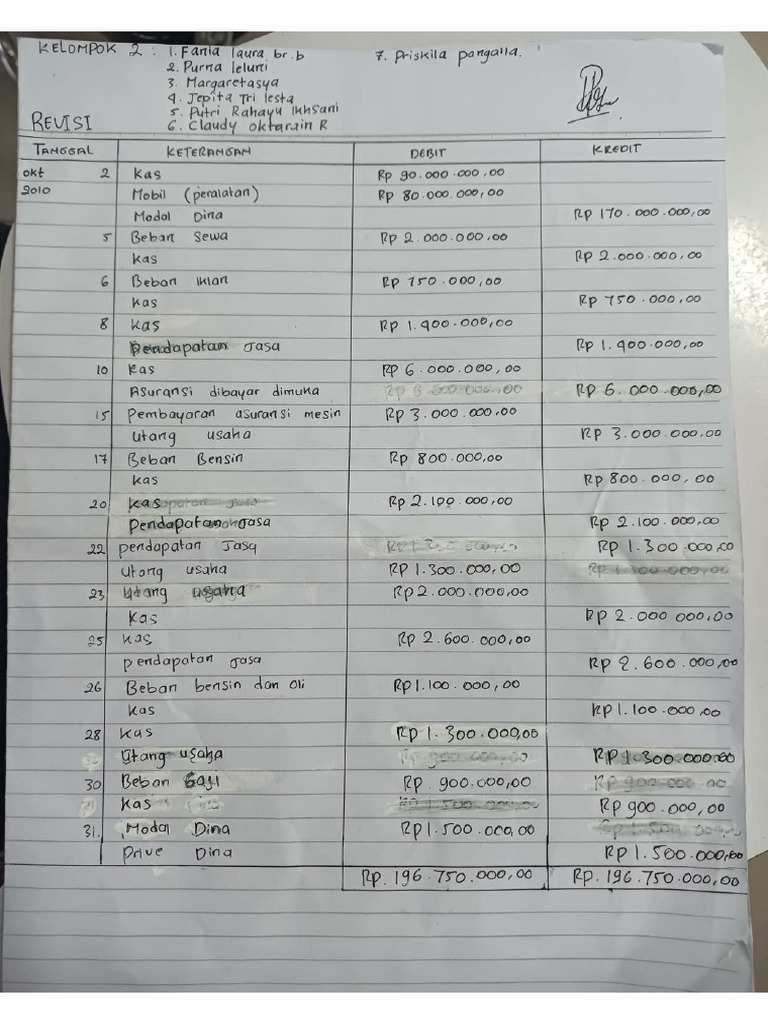 KELOMPOK 2 : 1. Fania laura br. b 7. Priskila pangalla.
2. Purna leluni
3. Margaretasya
4. Jepita Tri lesta
5. Putri Rahayu Ikhsani
REVISI 6. Claudy oktarain R
TANGGAL KETERANGAN DEBIT KREDIT
okt 2 Kas Rp 90.000.000,00
2010 Mobil (peralatan) Rp 80.000.000,00
Modal Dina Rp 170.000.000,00
5 Beban Sewa Rp 2.000.000,00
Kas Rp 2.000.000,00
6 Beban Iklan Rp 750.000,00
Kas Rp 750.000,00
8 Kas Rp 1.400.000,00
Pendapatan Jasa Rp 1.400.000,00
10 Kas Rp 6.000.000,00
Asuransi dibayar dimuka Rp 6.000.000,00
15 Pembayaran asuransi mesin Rp 3.000.000,00
Utang usaha Rp 3.000.000,00
17 Beban Bensin Rp 800.000,00
Kas Rp 800.000,00
20 Kas Rp 2.100.000,00
Pendapatan Jasa Rp 2.100.000,00
22 pendapatan Jasa Rp 1.300.000,00
Utang usaha Rp 1.300.000,00
23 Utang usaha Rp 2.000.000,00
Kas Rp 2.000 000,00
25 Kas Rp 2.600.000,00
pendapatan Jasa Rp 2.600.000,00
26 Beban bensin dan oli Rp 1.100.000,00
Kas Rp 1.100.000,00
28 Kas Rp 1.300.000,00
Utang usaha Rp 1.300.000.00
30 Beban Gaji Rp .900.000,00
Kas Rp 900.000,00
31. Modal Dina Rp 1.500.000,00
Prive Dina Rp 1.500.000,00
Rp. 196.750.000,00 Rp. 196.750.000,00